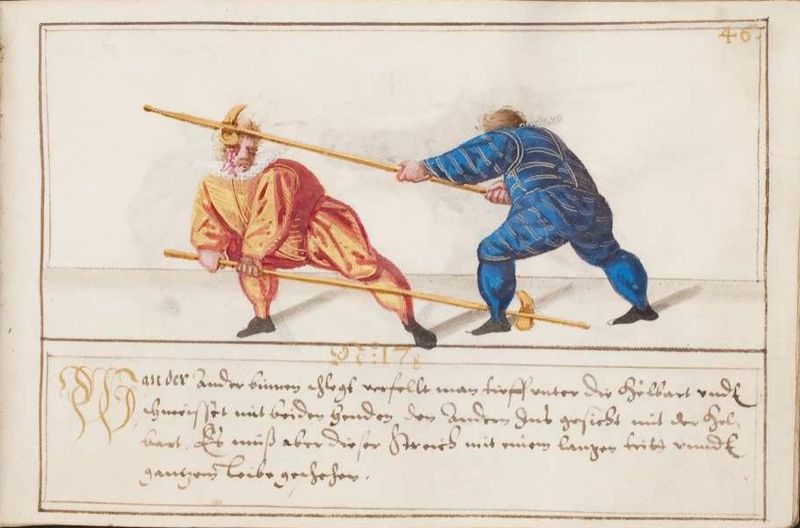 46
No: 17:
Wan der Ander binnen schlegt verfellt man tieff unter die Helbart undt
schmeisset mit beiden henden den Andern Ins gesicht mit der Hel-
bart. Es muß aber dieser Streich mit einem langen tritt unndt
gantzem leibe geschehen.